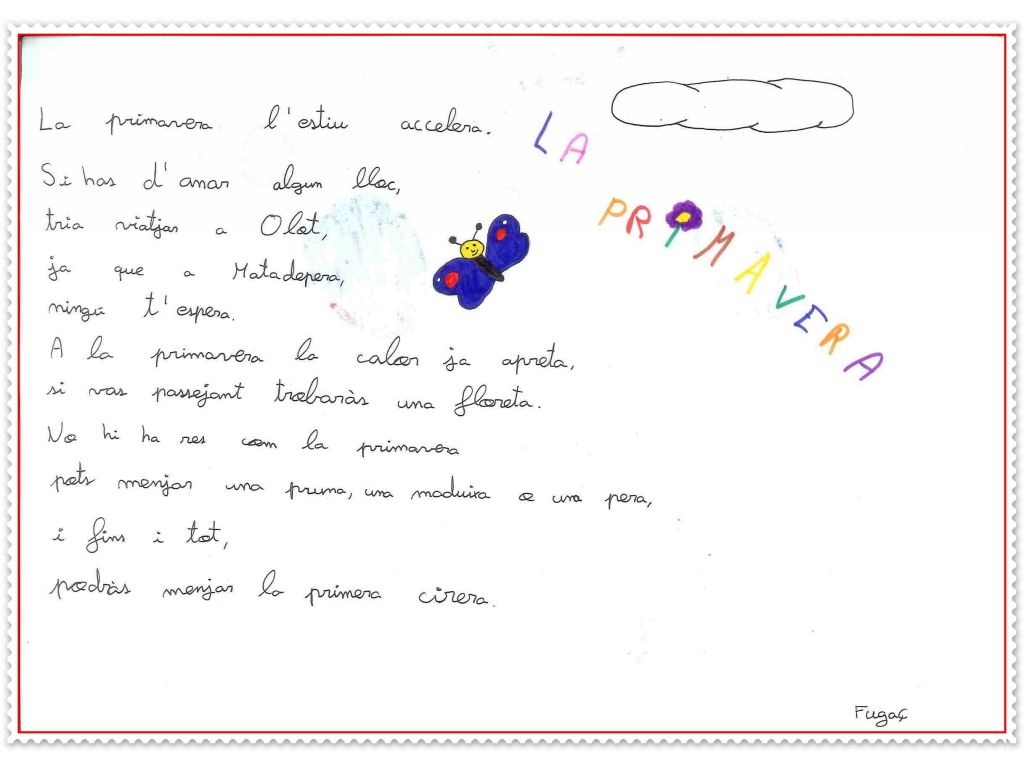 LA PRIMAVERA
La primavera l'estiu accelera.
Si has d'anar algun lloc,
tria viatjar a Olot,
ja que a Matadepera,
ningú t'espera.
A la primavera la calor ja apreta,
si vas passejant trobaràs una floreta.
No hi ha res com la primavera
pots menjar una pruna, una maduixa o una pera,
i fins i tot,
podràs menjar la primera cirera.
Fugaç